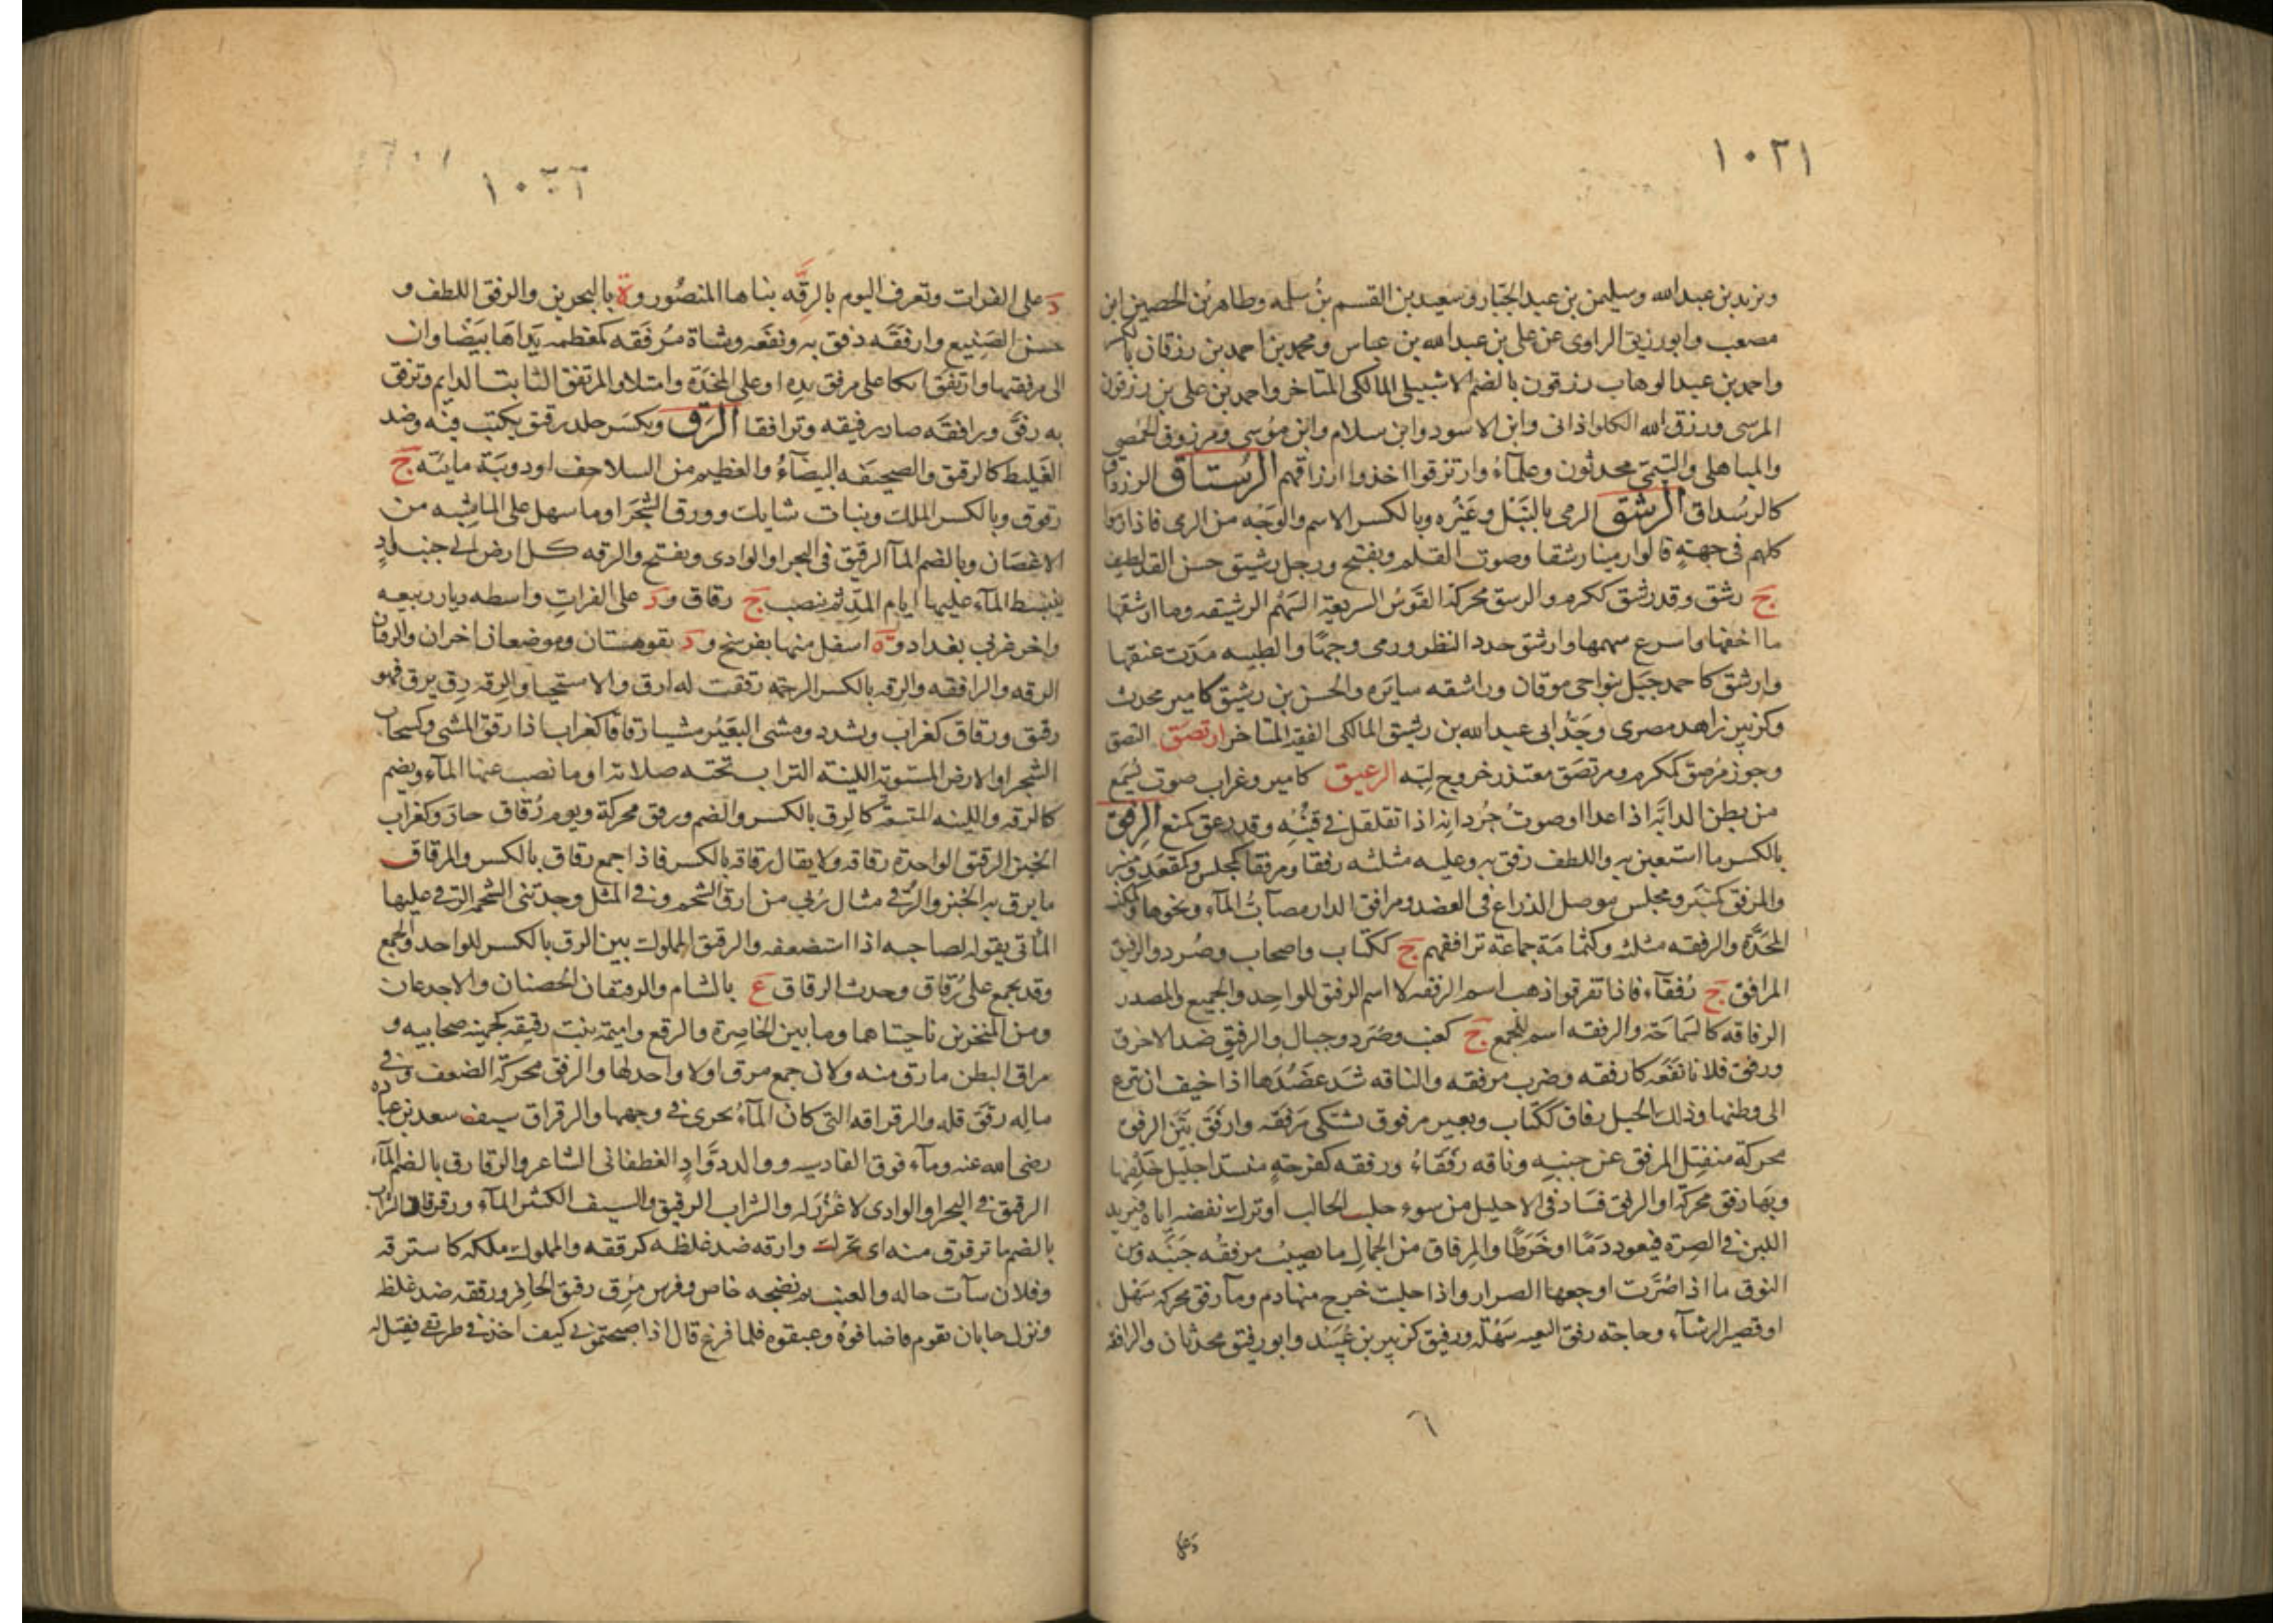 ١٠٢١
ويزيد بن عبد الله وسليمن بن عبد الجبار وسعيد بن القسم بن سلمه وطاهر بن الحصين ابن
مصعب وابورزيق الراوى عن على بن عبد الله بن عباس ومحمد بن احمد بن رزقان بالكسر
واحمد بن عبد الوهاب رزقون بالضم الاشبيلى المالكى المتاخر واحمد بن على بن رزقون
المرسى ورزق الله الكلواذانى وابن الاسود وابن سلام وابن موسى ومرزوق الحمصى
والباهلى والتيمى محدثون وعلمآء وارتزقوا اخذوا ارزاقهم الرستاق الرزداق
كالرسداق الرشق الرمى بالنبل وغيره وبالكسر الاسم والوجه من الرمى فاذا رموا
كلهم فى جهة قالوا رمينا رشقا وصوت القلم ويفتح ورجل رشيق حسن القد لطيفه
ج رشق وقد رشق ككرم والرشق محركة القوس السريعة السهم الرشيقه وما ارشقها
ما اخفها واسرع سهمها وارشق حدد النظر ورمى وجها والظبيه مدت عنقها
وارشق كاحمد جبل بنواحى موقان وراشقه سايره والحسن بن رشيق كامير محدث
وكزبير زاهد مصرى وجد ابى عبد الله بن رشيق المالكى الفقيه المتاخر ارتصق التصق
وجوز مرصق ككرم ومرتصق متعذر خروج لبه الرعيق كامير وغراب صوت يسمع
من بطن الدابة اذا عدا او صوت جردانه اذا تقلقل فى قنبه وقد رعق كمنع الرفق
بالكسر ما استعين به واللطف رفق به وعليه مثلثه رفقا ومرفقا كمجلس وكمقعد ومنبر
والمرفق كمنبر ومجلس موصل الذراع فى العضد ومرافق الدار مصاب المآء ونحوها
المخدة والرفقه مثلثه وكثمامة جماعة ترافقهم ج ككتاب واصحاب وصرد والرفيق
المرافق ج رفقآء فاذا تفرقوا ذهب اسم الرفقه لا اسم الرفيق للواحد والجميع والمصدر
الرفاقه كالسماحة والرفقه اسم للجمع ج كعنب وصرد وجبال والرفيق ضد الاخرق
ورفق فلانا نفعه كارفقه وضرب مرفقه والناقه شد عضدها اذا خيف ان تنزع
الى وطنها وذلك الحبل رفاق ككتاب وبعير مرفوق يشتكى مرفقه وارفق بين الرفق
محركة منفتل المرفق عن جنبه وناقه رفقاء ورفقه كفرحة منسد احليل خلفها
وبها رفق محركة او الرفق فساد فى الاحليل من سوء حلب الحالب او ترك نفضه اياه فيريد
اللبن فى الصرة فيعود دما او خرطا والمرفاق من الجمال ما يصيب مرفقه جنبه ومن
النوق ما اذا صرت اوجعها الصرار واذا حلبت خرج منها دم ومآ رفق محركه سهل
او قصير الرشآء وحاجته رفق البغيه سهلة ورفيق كزبير بن عبيد وابو رفيق محدثان والرافقه
٦
د على
١٠٢٢
د على الفرات وتعرف اليوم بالرقه بناها المنصور وة بالبحرين والرفق اللطف و
حسن الصنيع وارفقه رفق به ونفعه وشاة مرفقه كمعظمه يداها بيضاوان
الى مرفقيها وارتفق اتكا على مرفق يده او على المخدة وامتلا والمرتفق الثابت الدايم وترفق
به رفق ورافقه صار رفيقه وترافقا الرق ويكسر جلد رقيق يكتب فيه وضد
الغليظ كالرقيق والصحيفه البيضآء والعظيم من السلاحف او دويبة مايئه ج
رقوق وبالكسر الملك ونبات شايك وورق الشجر او ما سهل على الماشيه من
الاغصان وبالضم المآ الرقيق فى البحر او الوادى ويفتح والرقه كل ارض الى جنب واد
ينبسط المآء عليها ايام المد ثم ينصب ج رقاق ود على الفرات واسطه ديار ربيعه
واخر غربى بغداد وة اسفل منها بفرسخ ود بقوهستان وموضعان اخران والرقتان
الرقه والرافقه والرقه بالكسر الرحمة رققت له ارق والاستحيا والرقه رق يرق فهو
رقيق ورقاق كغراب ويشدد ومشى البعير مشيا رقاقا كغراب اذا رقق المشى وكسحاب
الشجر او الارض المستوية اللينة التراب تحته صلابة او ما نصب عنها المآء ويضم
كالرقه واللينه المتسعة كالرق بالكسر والضم ورقق محركة ويوم رقاق حار وكغراب
الخبز الرقيق الواحدة رقاقه ولا يقال رقاقه بالكسر فاذا جمع رقاق بالكسر والمرقاق
ما يرق به الخبز والرقى مثال ربى من ارق الشحم وفى المثل وجدتنى الشحمه الرقى عليها
الماتى يقوله لصاحبه اذا استضعفه والرقيق المملوك بين الرق بالكسر للواحد والجمع
وقد يجمع على رقاق وحدث الرقاق ع بالشام والرقيقان الحضنان والاخدعان
ومن المنخرين ناحيتاهما وما بين الخاصرة والرفغ واميمة بنت رقيقه كجهينه صحابيه و
مراق البطن ما رق منه ولان جمع مرق اولا واحد لها والرقق محركة الضعف وفى
ماله رقق قله والرقراقه التى كان المآء يجرى فى وجهها والرقراق سيف سعد بن عباده
رضى الله عنه ومآء فوق القادسيه ووالد دواد الغطفانى الشاعر والرقارق بالضم المآء
الرقيق فى البحر او الوادى لا غزر له والشراب الرقيق والسيف الكثير المآء ورقرقان السراب
بالضم ما ترقرق منه اى تحرك وارقه ضد غلظه كرققه والمملوك ملكه كاسترقه
وفلان سآت حاله والعنب تم نضجه خاص وفرس مرق رقيق الحافر ورققه ضد غلظ
ونزل جابان بقوم فاضافوه وغبقوه فلما فرغ قال اذا صبحتمونى كيف اخذ فى طريقى فقيل له